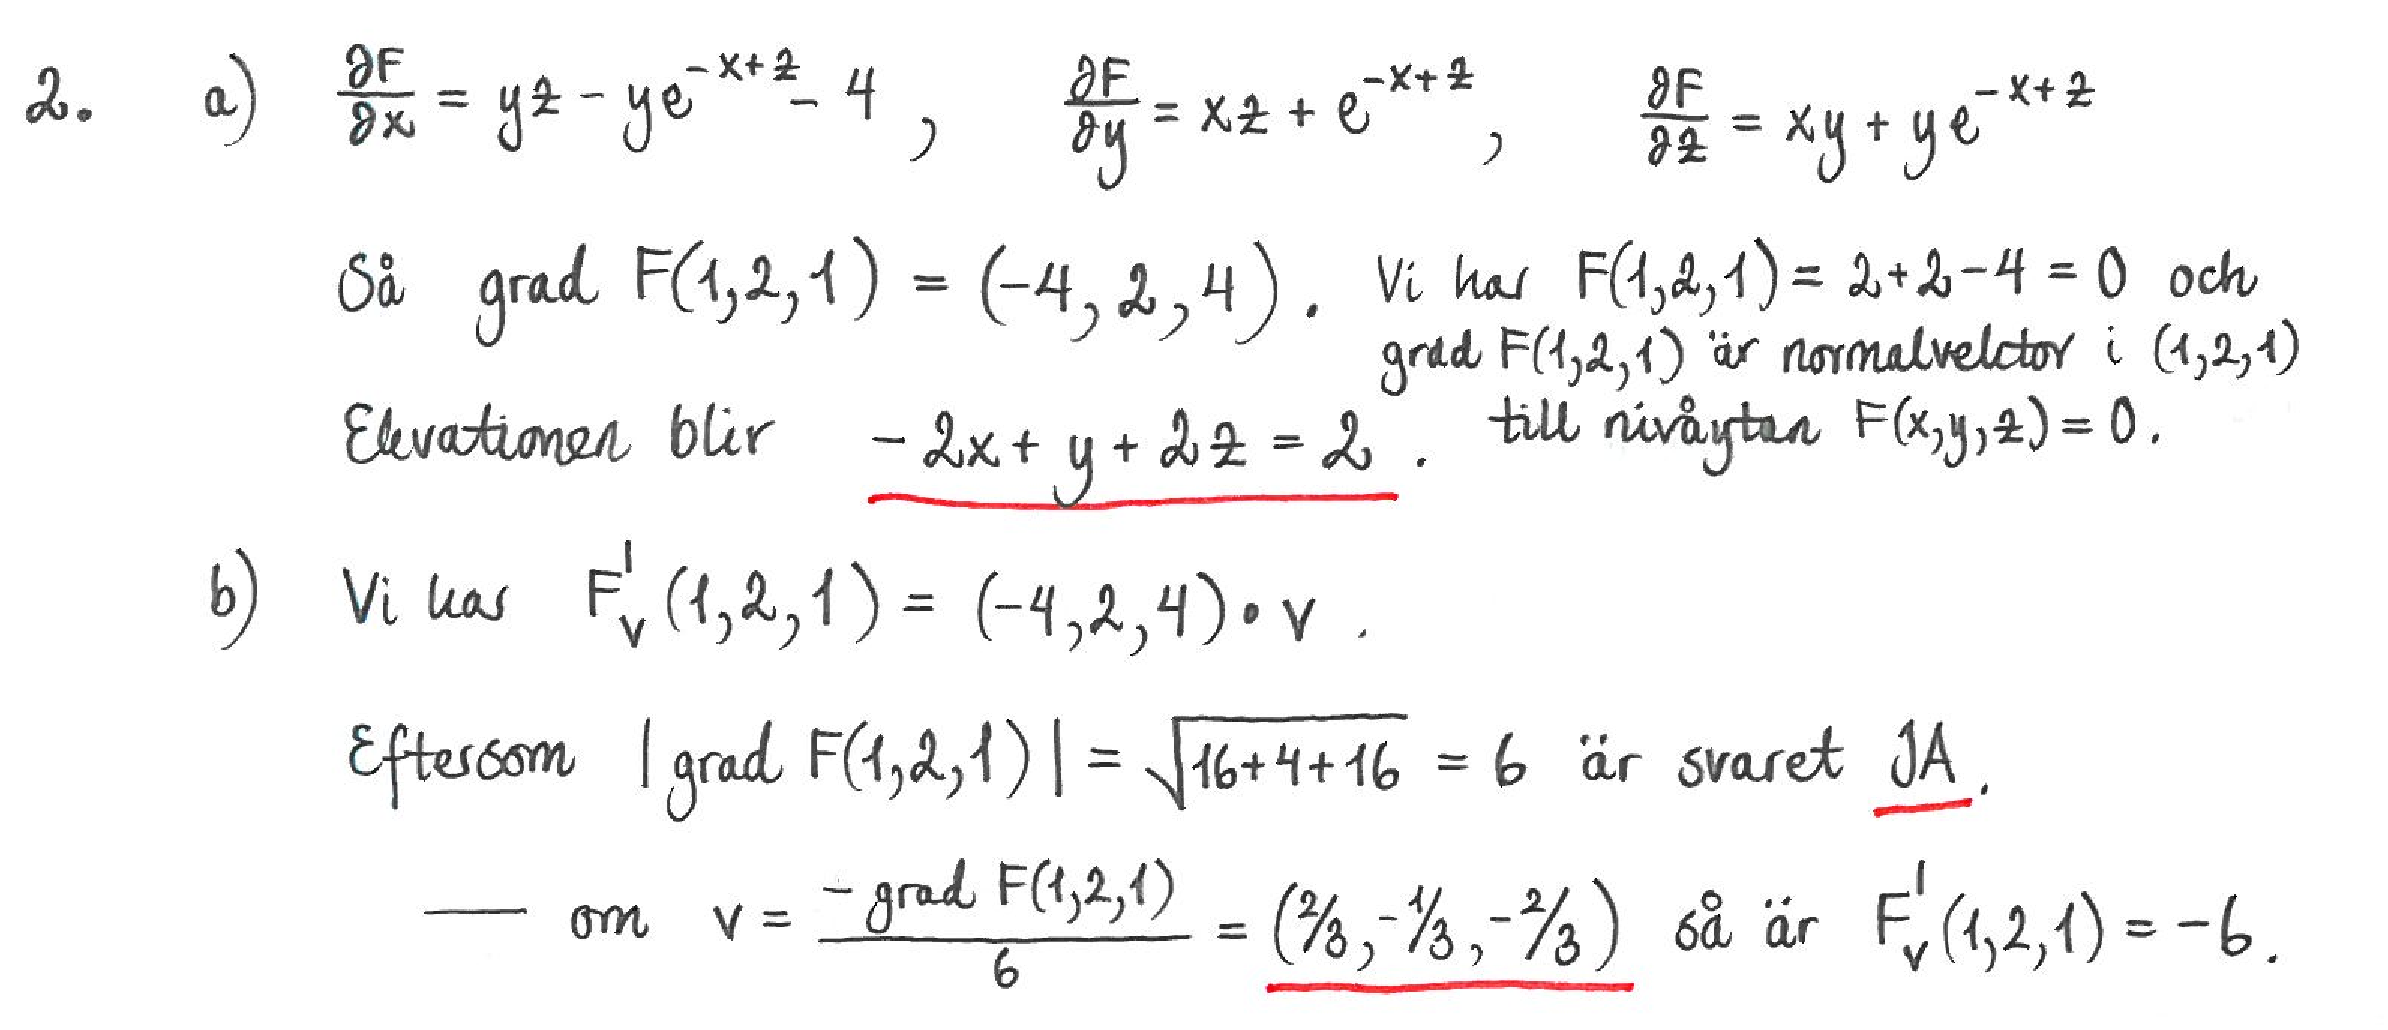 2. a) ∂F/∂x = yz - ye^{-x+z} - 4 , ∂F/∂y = xz + e^{-x+z} , ∂F/∂z = xy + ye^{-x+z}
Så grad F(1,2,1) = (-4, 2, 4). Vi har F(1,2,1) = 2+2-4 = 0 och
grad F(1,2,1) är normalvektor i (1,2,1)
Ekvationen blir -2x + y + 2z = 2 . till nivåytan F(x,y,z) = 0.
b) Vi har F'_v (1,2,1) = (-4,2,4) • v .
Eftersom | grad F(1,2,1) | = √(16+4+16) = 6 är svaret JA.
— om v = (- grad F(1,2,1))/6 = (2/3, -1/3, -2/3) så är F'_v (1,2,1) = -6.